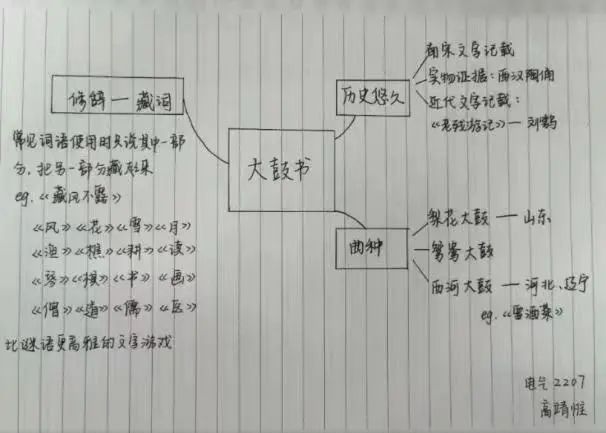 大鼓书
修辞—藏词
常见词语使用时只说其中一部
分,把另一部分藏起来
eg.《藏风不露》
《风》《花》《雪》《月》
《渔》《樵》《耕》《读》
《琴》《棋》《书》《画》
《僧》《道》《儒》《医》
比谜语更高雅的文字游戏
历史悠久
南宋文字记载
实物证据:西汉陶俑
近代文字记载:
《老残游记》—刘鹗
曲种
梨花大鼓—山东
鸳鸯大鼓
西河大鼓—河北、辽宁
eg.《雪酒菜》
电气2207
高靖